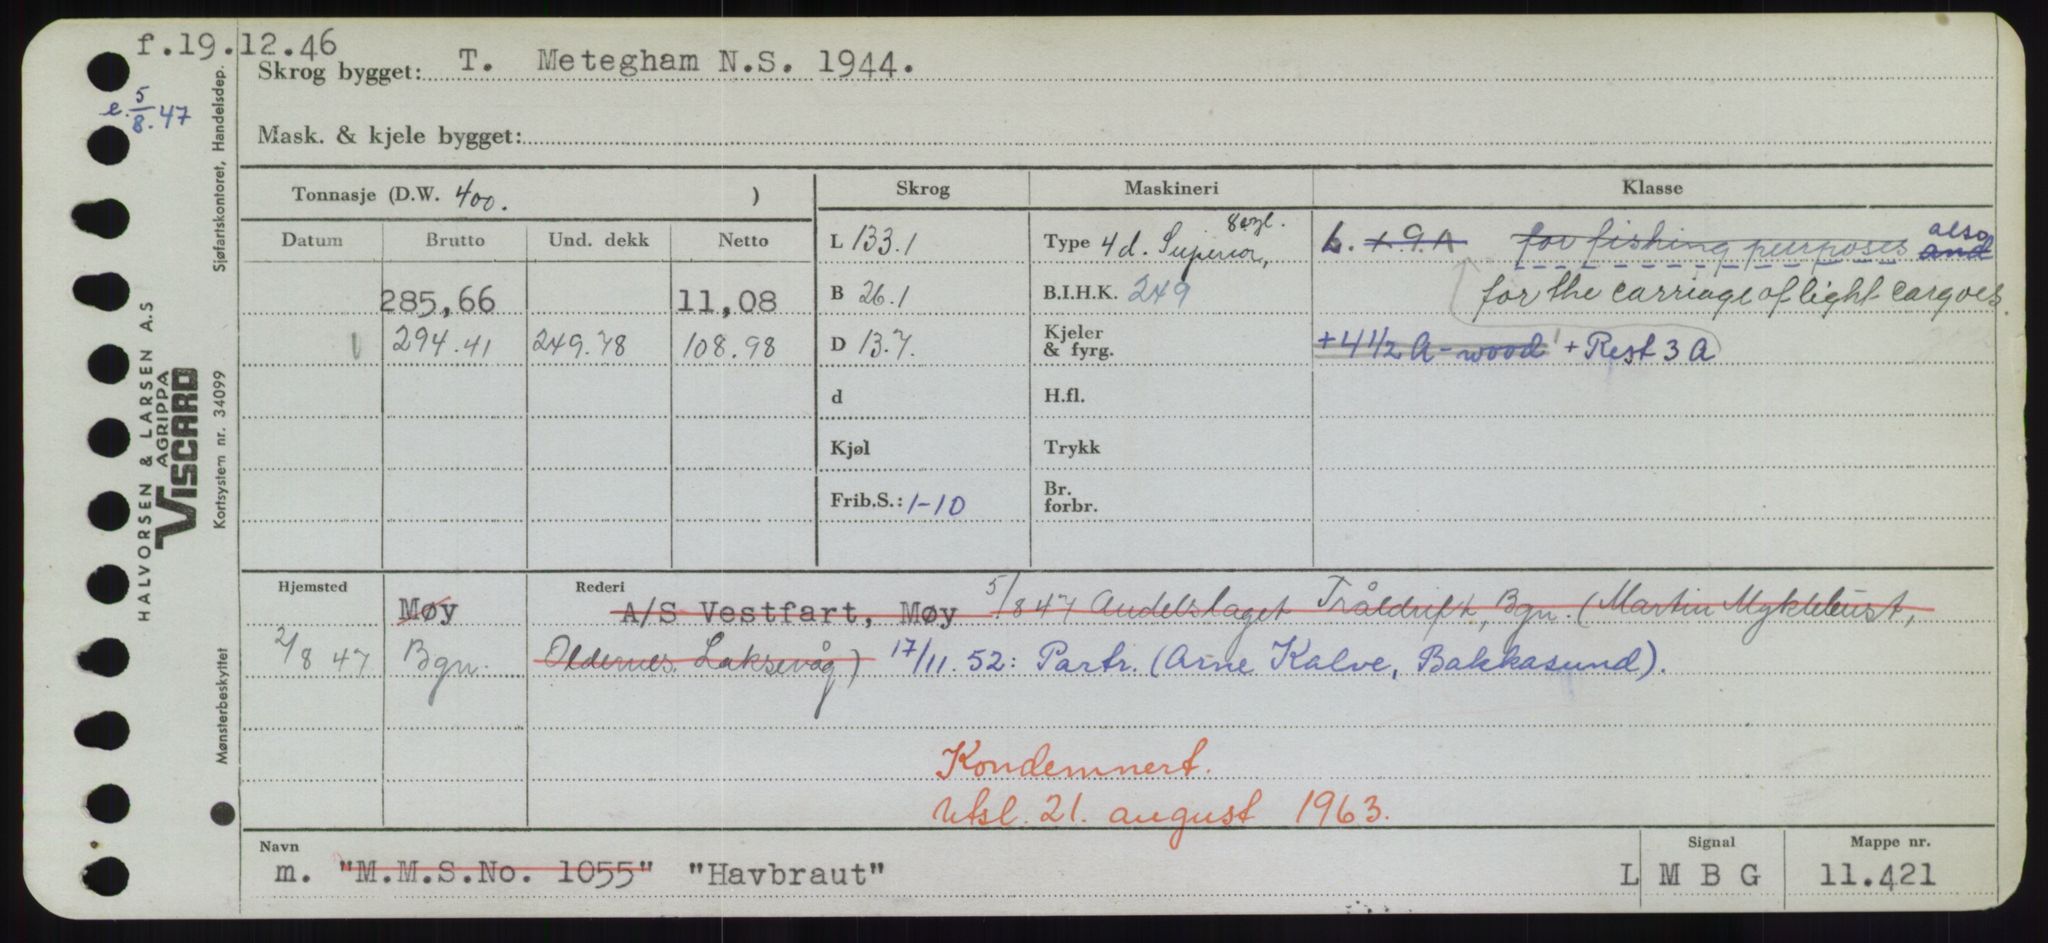 f.19.12.46
e. 5/8.47
Skrog bygget: T. Metegham N.S. 1944.
Mask. & kjele bygget:
Tonnasje (D.W. 400. )
Skrog
Maskineri
Klasse
Datum
Brutto
Und. dekk
Netto
285,66 11,08
294.41 249.78 108.98
L 133.1
B 26.1
D 13.7.
d
Kjøl
Frib.S.: 1-10
Type 4 d. Superior, 8 cyl.
B.I.H.K. 249
Kjeler
& fyrg.
H.fl.
Trykk
Br.
forbr.
L. + 9.A for fishing purposes and also
for the carriage of light cargoes.
+4 1/2 A - wood + Rest 3 A
Hjemsted
Rederi
Møy A/S Vestfart, Møy 5/8 47 Andelslaget Tråldrift, Bgn. (Martin Myklebust,
2/8 47 Bgn. Oldernes. Laksevåg) 17/11.52: Partr. (Arne Kalve, Bakkasund).
Kondemnert.
Utsl. 21. august 1963.
Navn
Signal
Mappe nr.
m. "M.M.S.No. 1055" "Havbraut" L M B G 11.421
HALVORSEN & LARSEN A.S
AGRIPPA
VISCARD
Mønsterbeskyttet
Kortsystem nr. 34099
Sjøfartskontoret, Handelsdep.